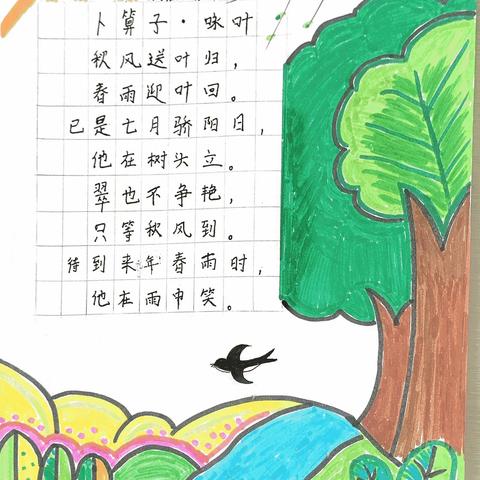 卜算子·咏叶
秋风送叶归，
春雨迎叶回。
已是七月骄阳日，
他在树头立。
翠也不争艳，
只等秋风到。
待到来年春雨时，
他在雨中笑。